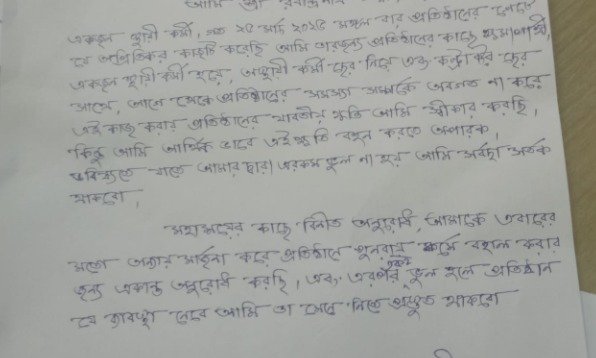 আমি শ্রী
একজন স্থায়ী কর্মী, গত ২৫ মার্চ ২০২৫ মঙ্গল বার প্রতিষ্ঠানের গেটে
যে অপ্রীতিকর কাজটি করেছি আমি তারজন্য প্রতিষ্ঠানের কাছে ক্ষমাপ্রার্থী,
একজন স্থায়ী কর্মী হয়ে, অস্থায়ী কর্মী দের নিয়ে এবং কন্ট্রাক্টর দের
সাথে, আগে থেকে প্রতিষ্ঠানের সমস্যা সম্পর্কে অবগত না করে
এই কাজ করায় প্রতিষ্ঠানের যাবতীয় ক্ষতি আমি স্বীকার করছি,
কিন্তু আমি আর্থিক ভাবে এই ক্ষতি বহন করতে অপারক,
ভবিষ্যতে যাতে আমার দ্বারা এরকম ভুল না হয় আমি সর্বদা সতর্ক
থাকবো,
মহাশয়ের কাছে বিনীত অনুরোধ, আমাকে এবারের
মতো অন্যায় মার্জনা করে প্রতিষ্ঠানে পুনরায় কর্মে বহাল করার
জন্য একান্ত অনুরোধ করছি, এবং এরপর একই ভুল হলে প্রতিষ্ঠান
যে ব্যবস্থা নেবে আমি তা মেনে নিতে প্রস্তুত থাকবো